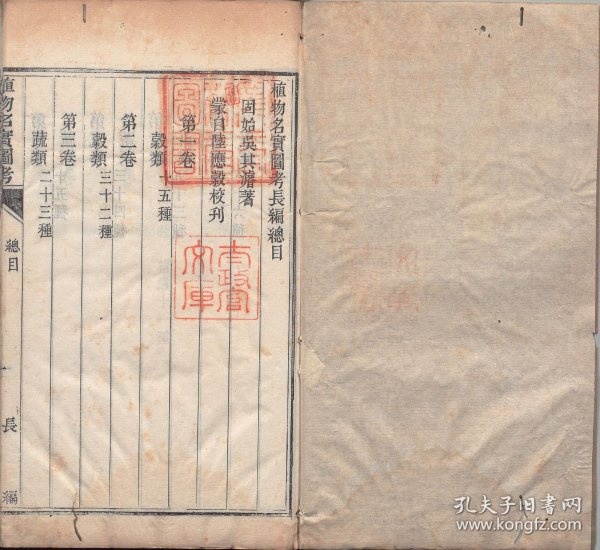 植物名實圖考長編總目
固始吳其濬著
蒙自陸應穀校刊
第一卷
穀類 十五種
第二卷
穀類 三十二種
第三卷
蔬類 二十三種
植物名實圖考
總目
長編
太政官文庫
孔夫子旧书网
www.kongfz.com